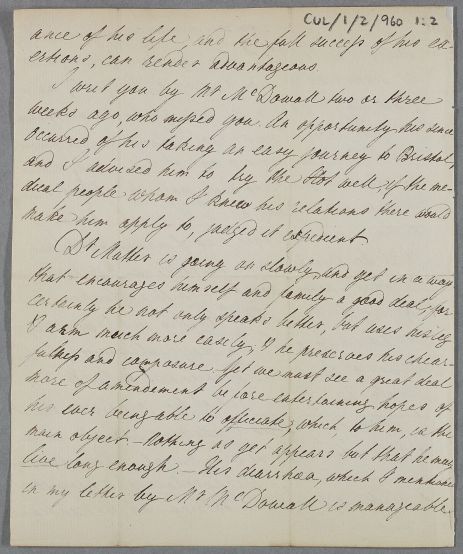 CUL/1/2/960 1:2
ance of his life, and the full success of his ex-
ertions, can render advantageous
I writ you by Mr McDowall two or three
weeks ago, who missed you. An opportunity has since
occurred of his taking an easy journey to Bristol,
and I advised him to try the Hot well, if the me-
dical people whom I knew his relations there would
make him apply to, judged it expedient
Dr Mutter is going on slowly, and yet in a way
that encourages himself and family a good deal, for
certainly he not only speaks better, but uses his leg
& arm much more easily, & he preserves his chear-
fulness and composure. yet we must see a great deal
more of amendment before entertaining hopes of
his ever being able to officiate, which to him, is the
main object. - Nothing as yet appears but that he may
live long enough. - His diarrhœa, which I mentioned
in my letter by Mr McDowall is manageable